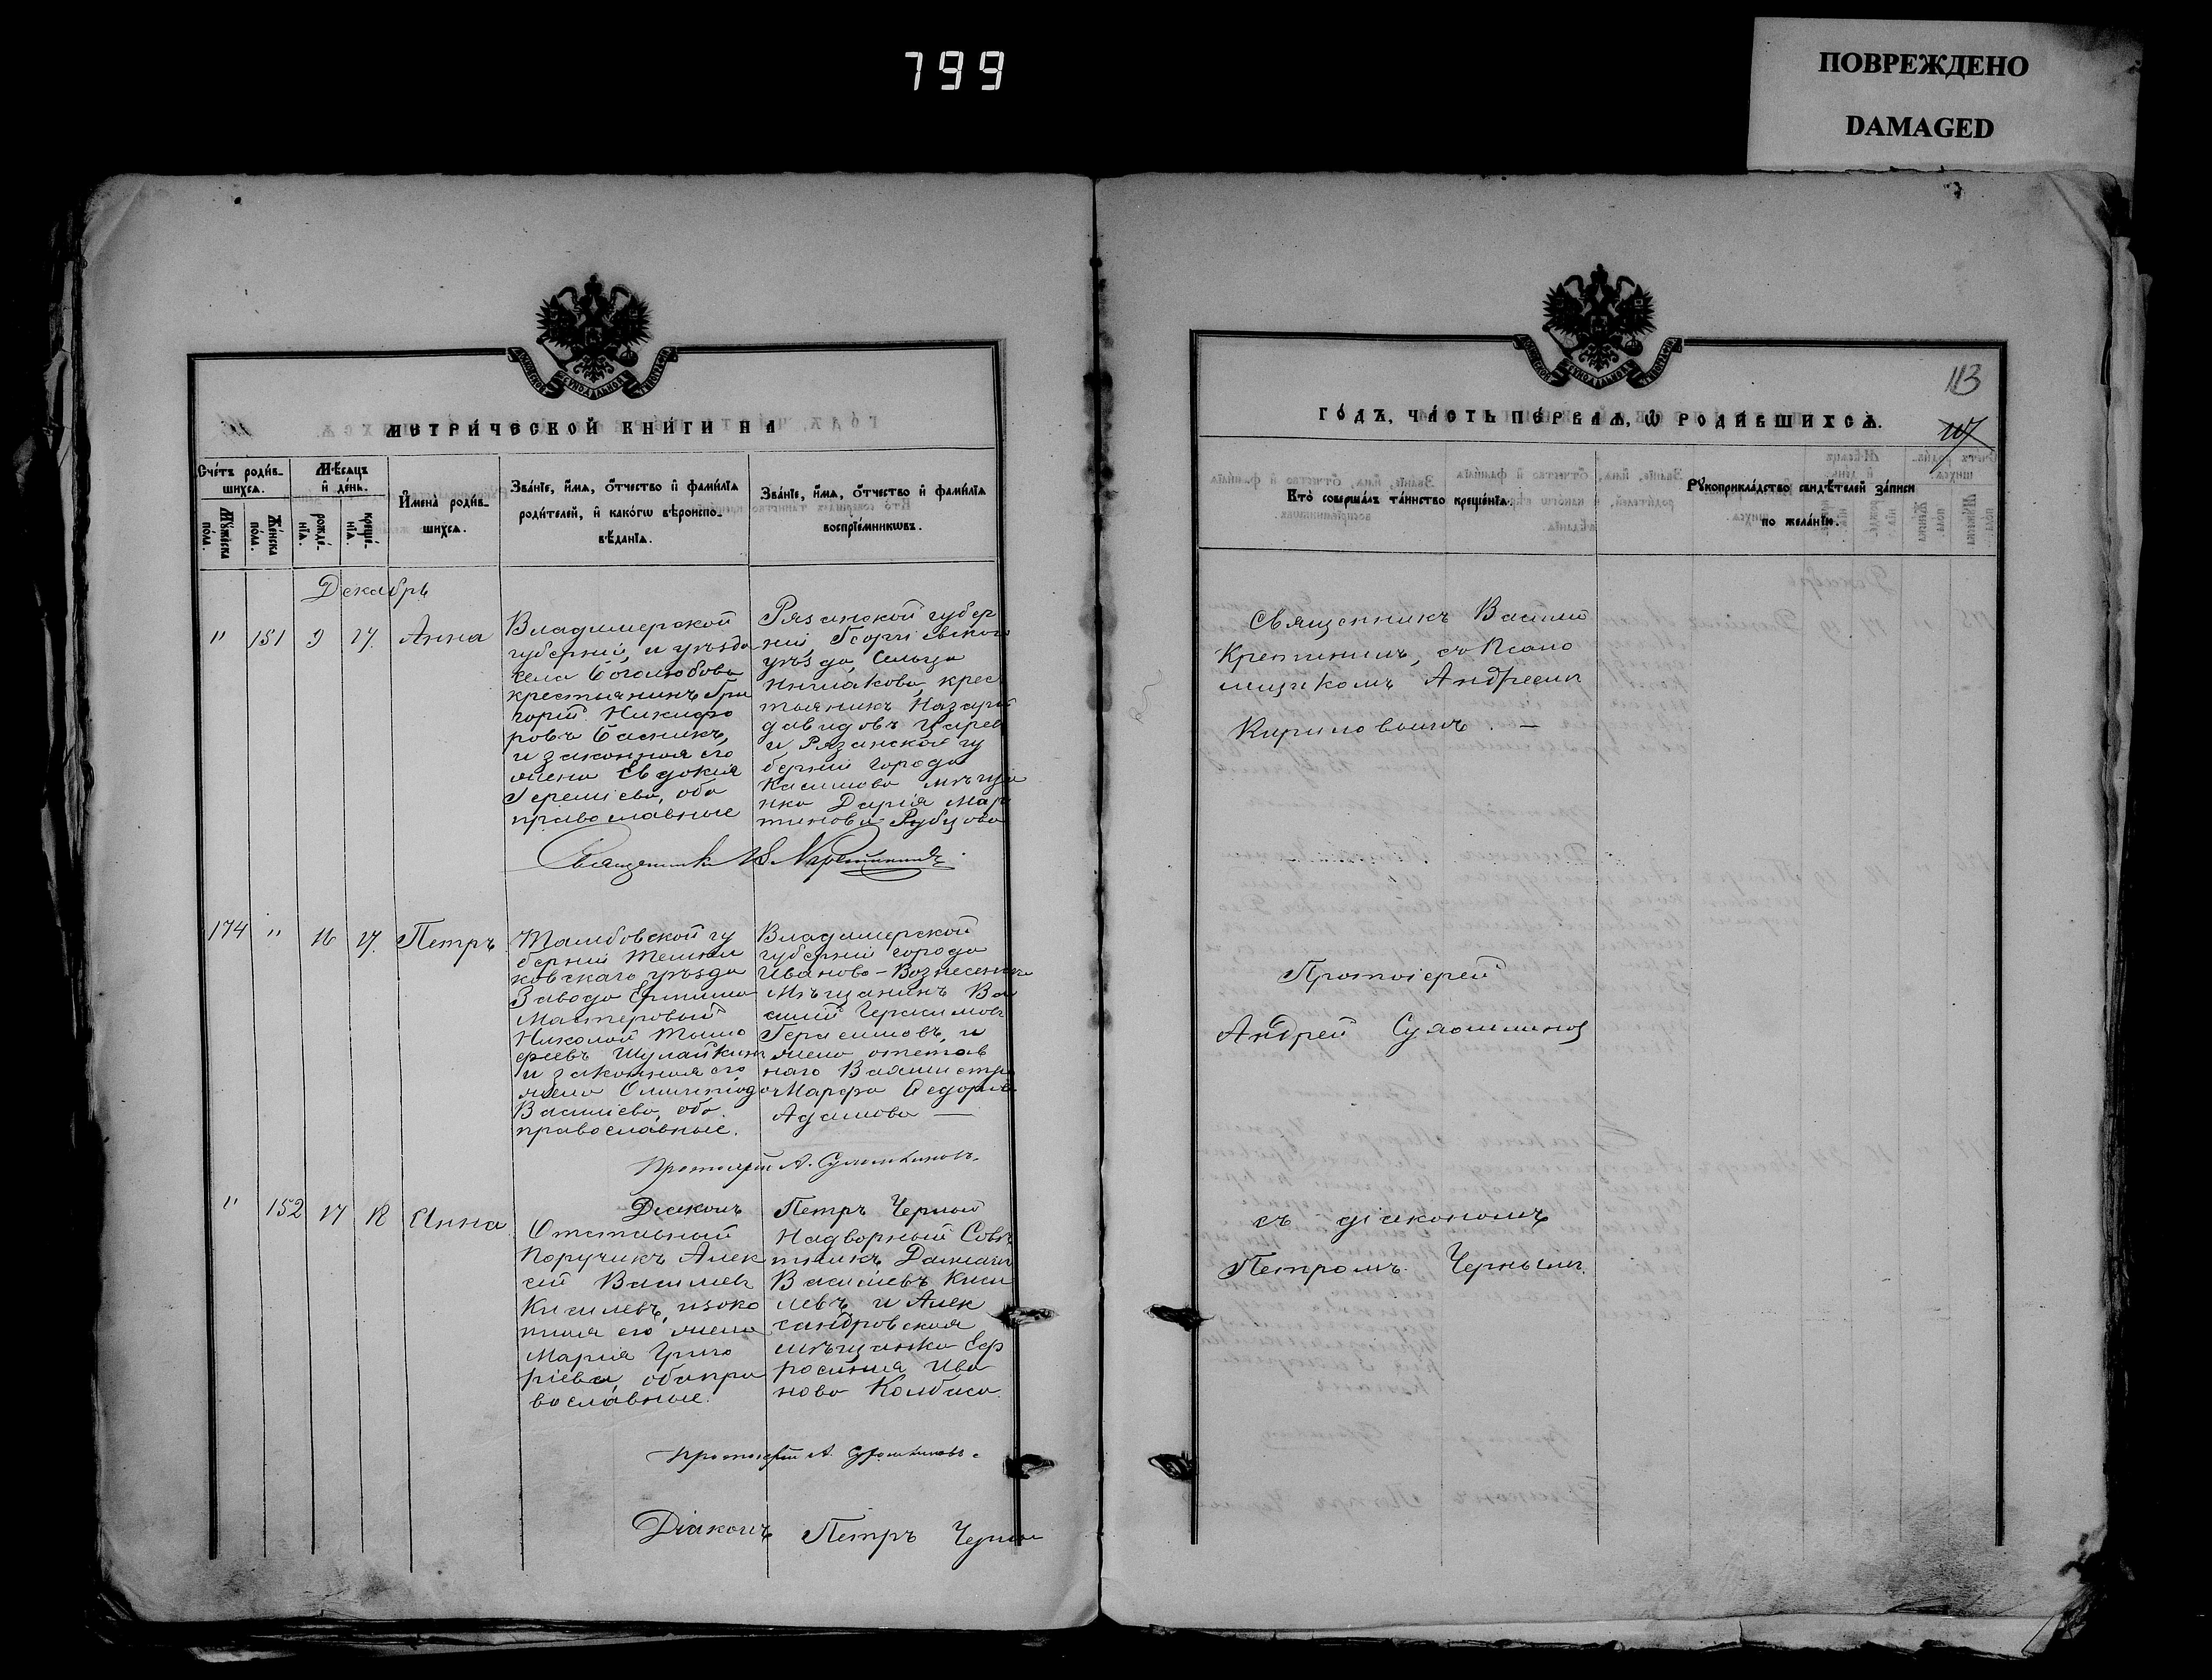 799
ПОВРЕЖДЕНО
DAMAGED
МЕТРИ́ЧЕСКОЙ КНИГИ НА
Сче́тъ роди́в-
шихсѧ.
Мѣ́сѧцъ
и҆ де́нь.
И҆мена роди́в-
шихсѧ.
Зва́нїе, и҆́мѧ, ѻ҆́тчество и҆ фами́лїѧ
роди́телей, и҆ како́гѡ вѣроиспо-
вѣ́данїѧ.
Зва́нїе, и҆́мѧ, ѻ҆́тчество и҆ фами́лїѧ
воспрїе́мникѡвъ.
Мꙋ́жеска
по́ла.
Же́нска
по́ла.
рожде́-
нїѧ.
креще́-
нїѧ.
Декабрь
" 151 9 17. Анна
Владимерской
губерніи, и уѣзда
села Боголюбова
крестьянинъ Гри
горій Никифо
ровъ Басникъ,
и законная его
жена Евдокія
Іереміева, оба
православные
Рязанской губер
ніи, Георгіевскаго
уѣзда, Сельца
крес
тьянинъ Назарій
Давидовъ Царев
и Рязанской гу
берніи города
Касимова мѣща
нка Дарія Мар
тинова Рубцова
Священникъ В. Крептининъ
174 " 16 17. Петръ
Тамбовской гу
берніи Темни
ковскаго уѣзда
Завода Ермиши
Мастеровый
Николай Тимо
феевъ Шулайкинъ
и законная его
жена Олимпіода
Василіева, оба
православные.
Владимерской
губерніи города
Иваново-Вознесенска
Мѣщанинъ Ва
силій Герасимовъ
Герасимовъ, и
жена отстав
наго Вахмистра
Марфа Федорова
Адамова —
Протоіерей А. Сулошниковъ.
Діаконъ Петръ Черный
" 152 17 18 Анна
Отставный
Поручикъ Алек
сій Василіевъ
Киселевъ, изако
нная его жена
Марія Григо
ріева, обапра
вославные.
Надворный Совѣ
тникъ
Василіевъ Кисе
левъ и Алек
сандровская
мѣщанка Ев
росинія Ива
нова Колбаса.
Протоіерей А. Сулошниковъ.
Діаконъ Петръ Черный
113
ГО́ДЪ, ЧА́СТЬ ПЕ́РВАѦ, Ѡ҆ РОДИ́ВШИХСѦ.
Кто̀ соверша́лъ та́инство креще́нїѧ.
Рꙋкоприкла́дство свидѣ́телей за́писи
по жела́нїю.
Священникъ Василій
Крептининъ, съ Псало
мщикомъ Андреемъ
Кириловымъ. —
Протоіерей
Андрей Сулошниковъ
съ діакономъ
Петромъ Чернымъ.